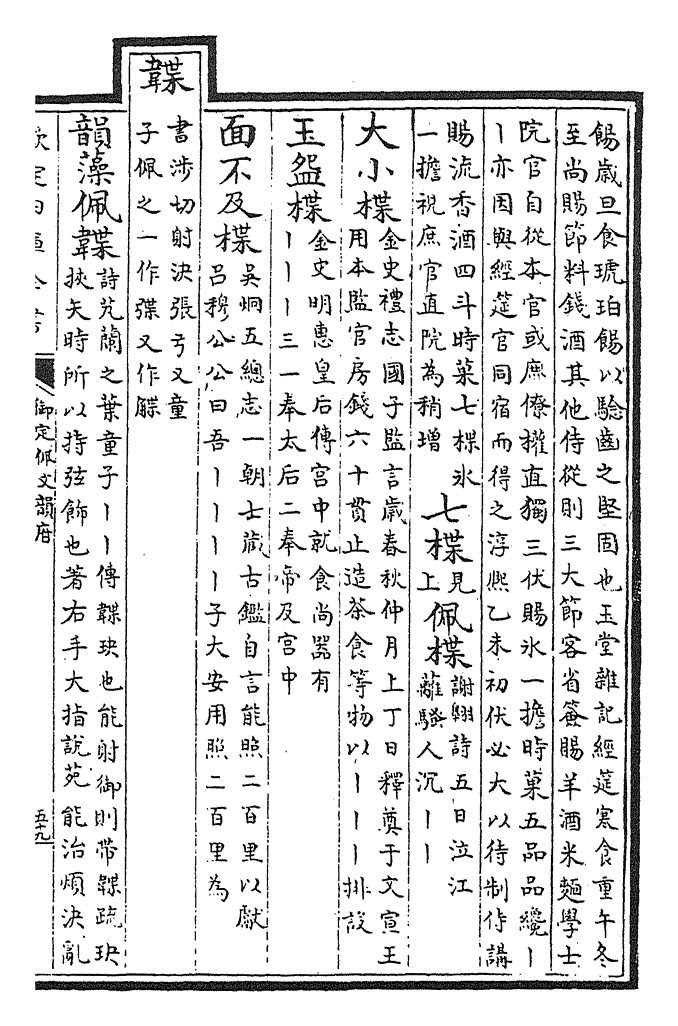 餳歲旦食琥珀餳以驗齒之堅固也玉堂雜記經筵寒食重午冬
至尚賜節料錢酒其他侍從則三大節客省簽賜羊酒米麵學士
院官自從本官或庶僚權直獨三伏賜氷一擔時菓五品品纔丨
丨亦因與經筵官同宿而得之淳熙乙未初伏必大以待制侍講
賜流香酒四斗時菓七楪氷
一擔祝庶官直院為稍增
七楪見
上
佩楪謝翺詩五日泣江
蘺騷人沉丨丨
大小楪金史禮志國子監言歲春秋仲月上丁日釋奠于文宣王
用本監官房錢六十貫止造茶食等物以丨丨丨排設
玉盌楪金史明惠皇后傳宮中就食尚器有
丨丨丨三一奉太后二奉帝及宮中
面不及楪吳炯五總志一朝士藏古鑑自言能照二百里以獻
呂穆公公曰吾丨丨丨丨子大安用照二百里為
韘
書涉切射決張弓又童
子佩之一作弽又作䚢
韻藻佩韘詩芃蘭之葉童子丨丨傳韘玦也能射御則帶韘疏玦
挾矢時所以持弦飾也著右手大指說苑能治煩決亂
欽定四庫全書
御定佩文韻府
五十九